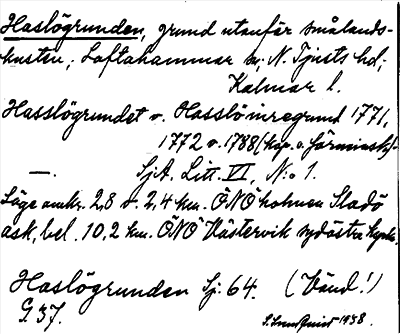 Haslögrunden, grund utanför smålands-
kusten, Loftahammar sn, N. Tjusts hd,
Kalmar l.
Hasslögrundet o. Hasslö inregrund 1771,
1772 o. 1788 (kop. o. förminsk.)
—. Sj.A. Litt. VI, N:o 1.
Läge omkr. 2,8 o. 2,4 km. ÖNÖ holmen Sladö
ask, bel. 10,2 km. ÖNÖ Västervik sydöstra
Haslögrunden Sj: 64. (Vänd!)
G. 37. 1938